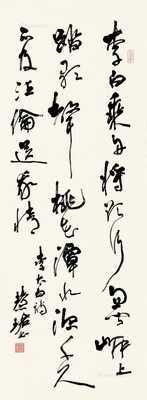 李白乘舟将欲行忽闻岸上
踏歌声桃花潭水深千尺
不及汪伦送我情
李太白诗